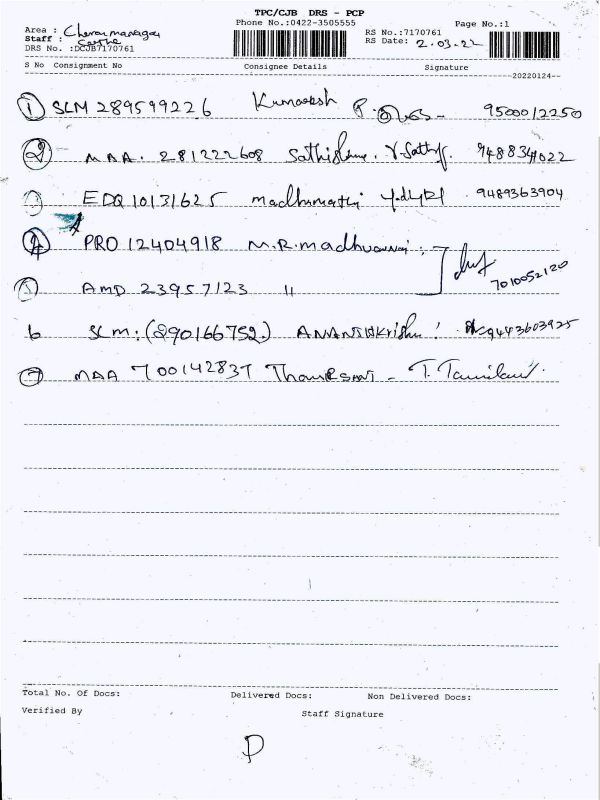 TPC/CJB DRS - PCP
Phone No.:0422-3505555
Page No.:1
Area : Cheranmanagar
Staff :
DRS No. :DCJB7170761
RS No.:7170761
RS Date: 2.03.22
S No Consignment No Consignee Details Signature
20220124
1 SLM 289599226 Kumaresh 9500012250
2 MAA. 281222608 Sathish 9488341022
3 EDQ 10131625 Madhumathi 9489363904
4 PRO 12404918 M.R.Madhu
7010052120
5 AMD 23957123 "
6 SLM: (290166752.) ANANTHKrishn 9443603925
7 MAA 700142837 T.
Total No. Of Docs: Delivered Docs: Non Delivered Docs:
Verified By Staff Signature
D